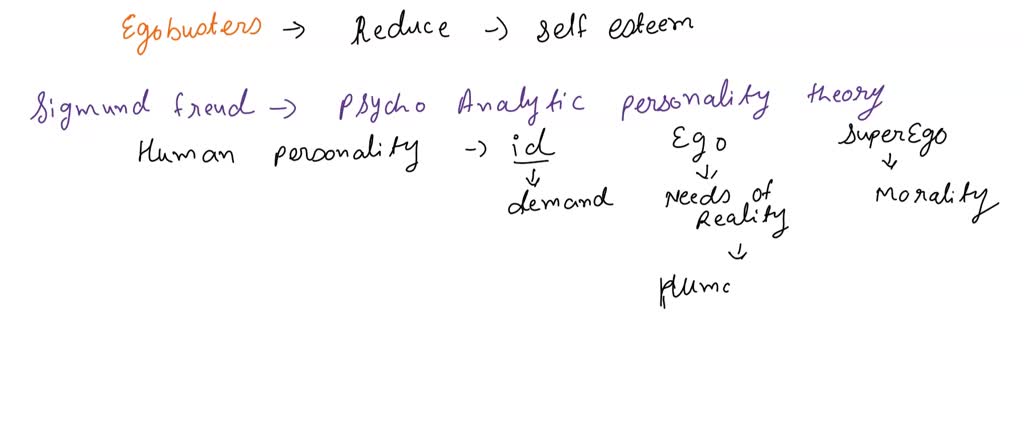 Egobusters → Reduce → self esteem
Sigmund freud → Psycho Analytic personality theory
Human personality → id Ego SuperEgo
↓ ↓ ↓
demand Needs of Reality Morality
↓
Huma